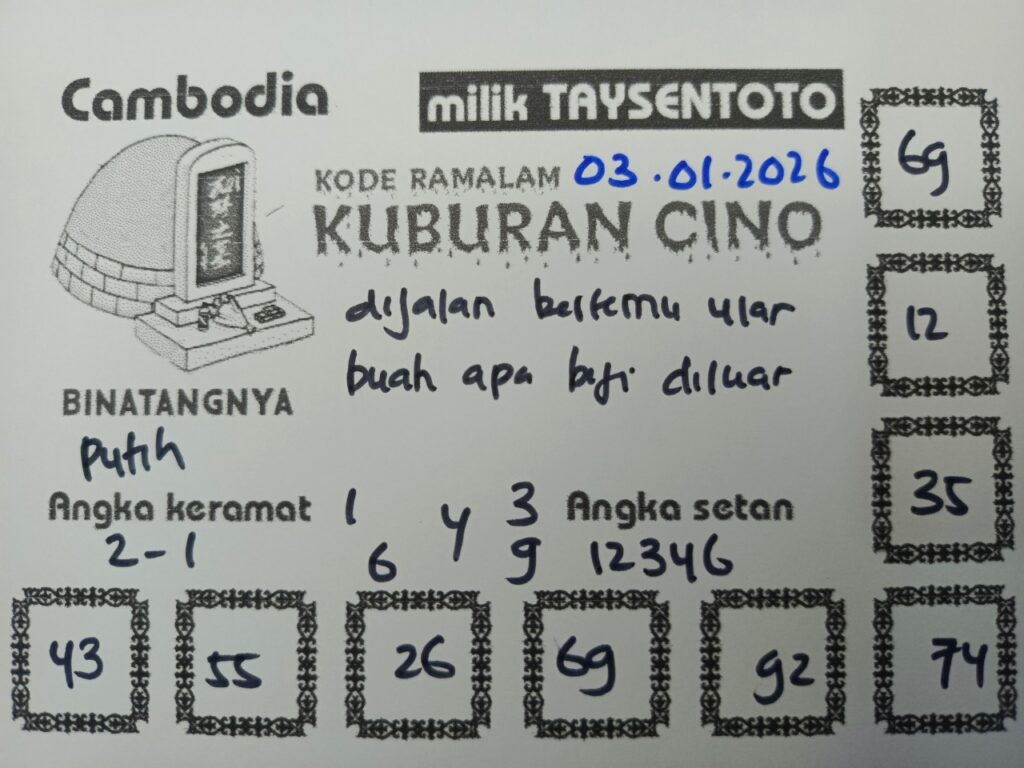 Cambodia
milik TAYSENTOTO
KODE RAMALAM 03.01.2026
KUBURAN CINO
dijalan bertemu ular
buah apa biji diluar
BINATANGNYA
putih
Angka keramat
2-1
1 3
4
6 9
Angka setan
12346
69
12
35
43 55 26 69 92 74